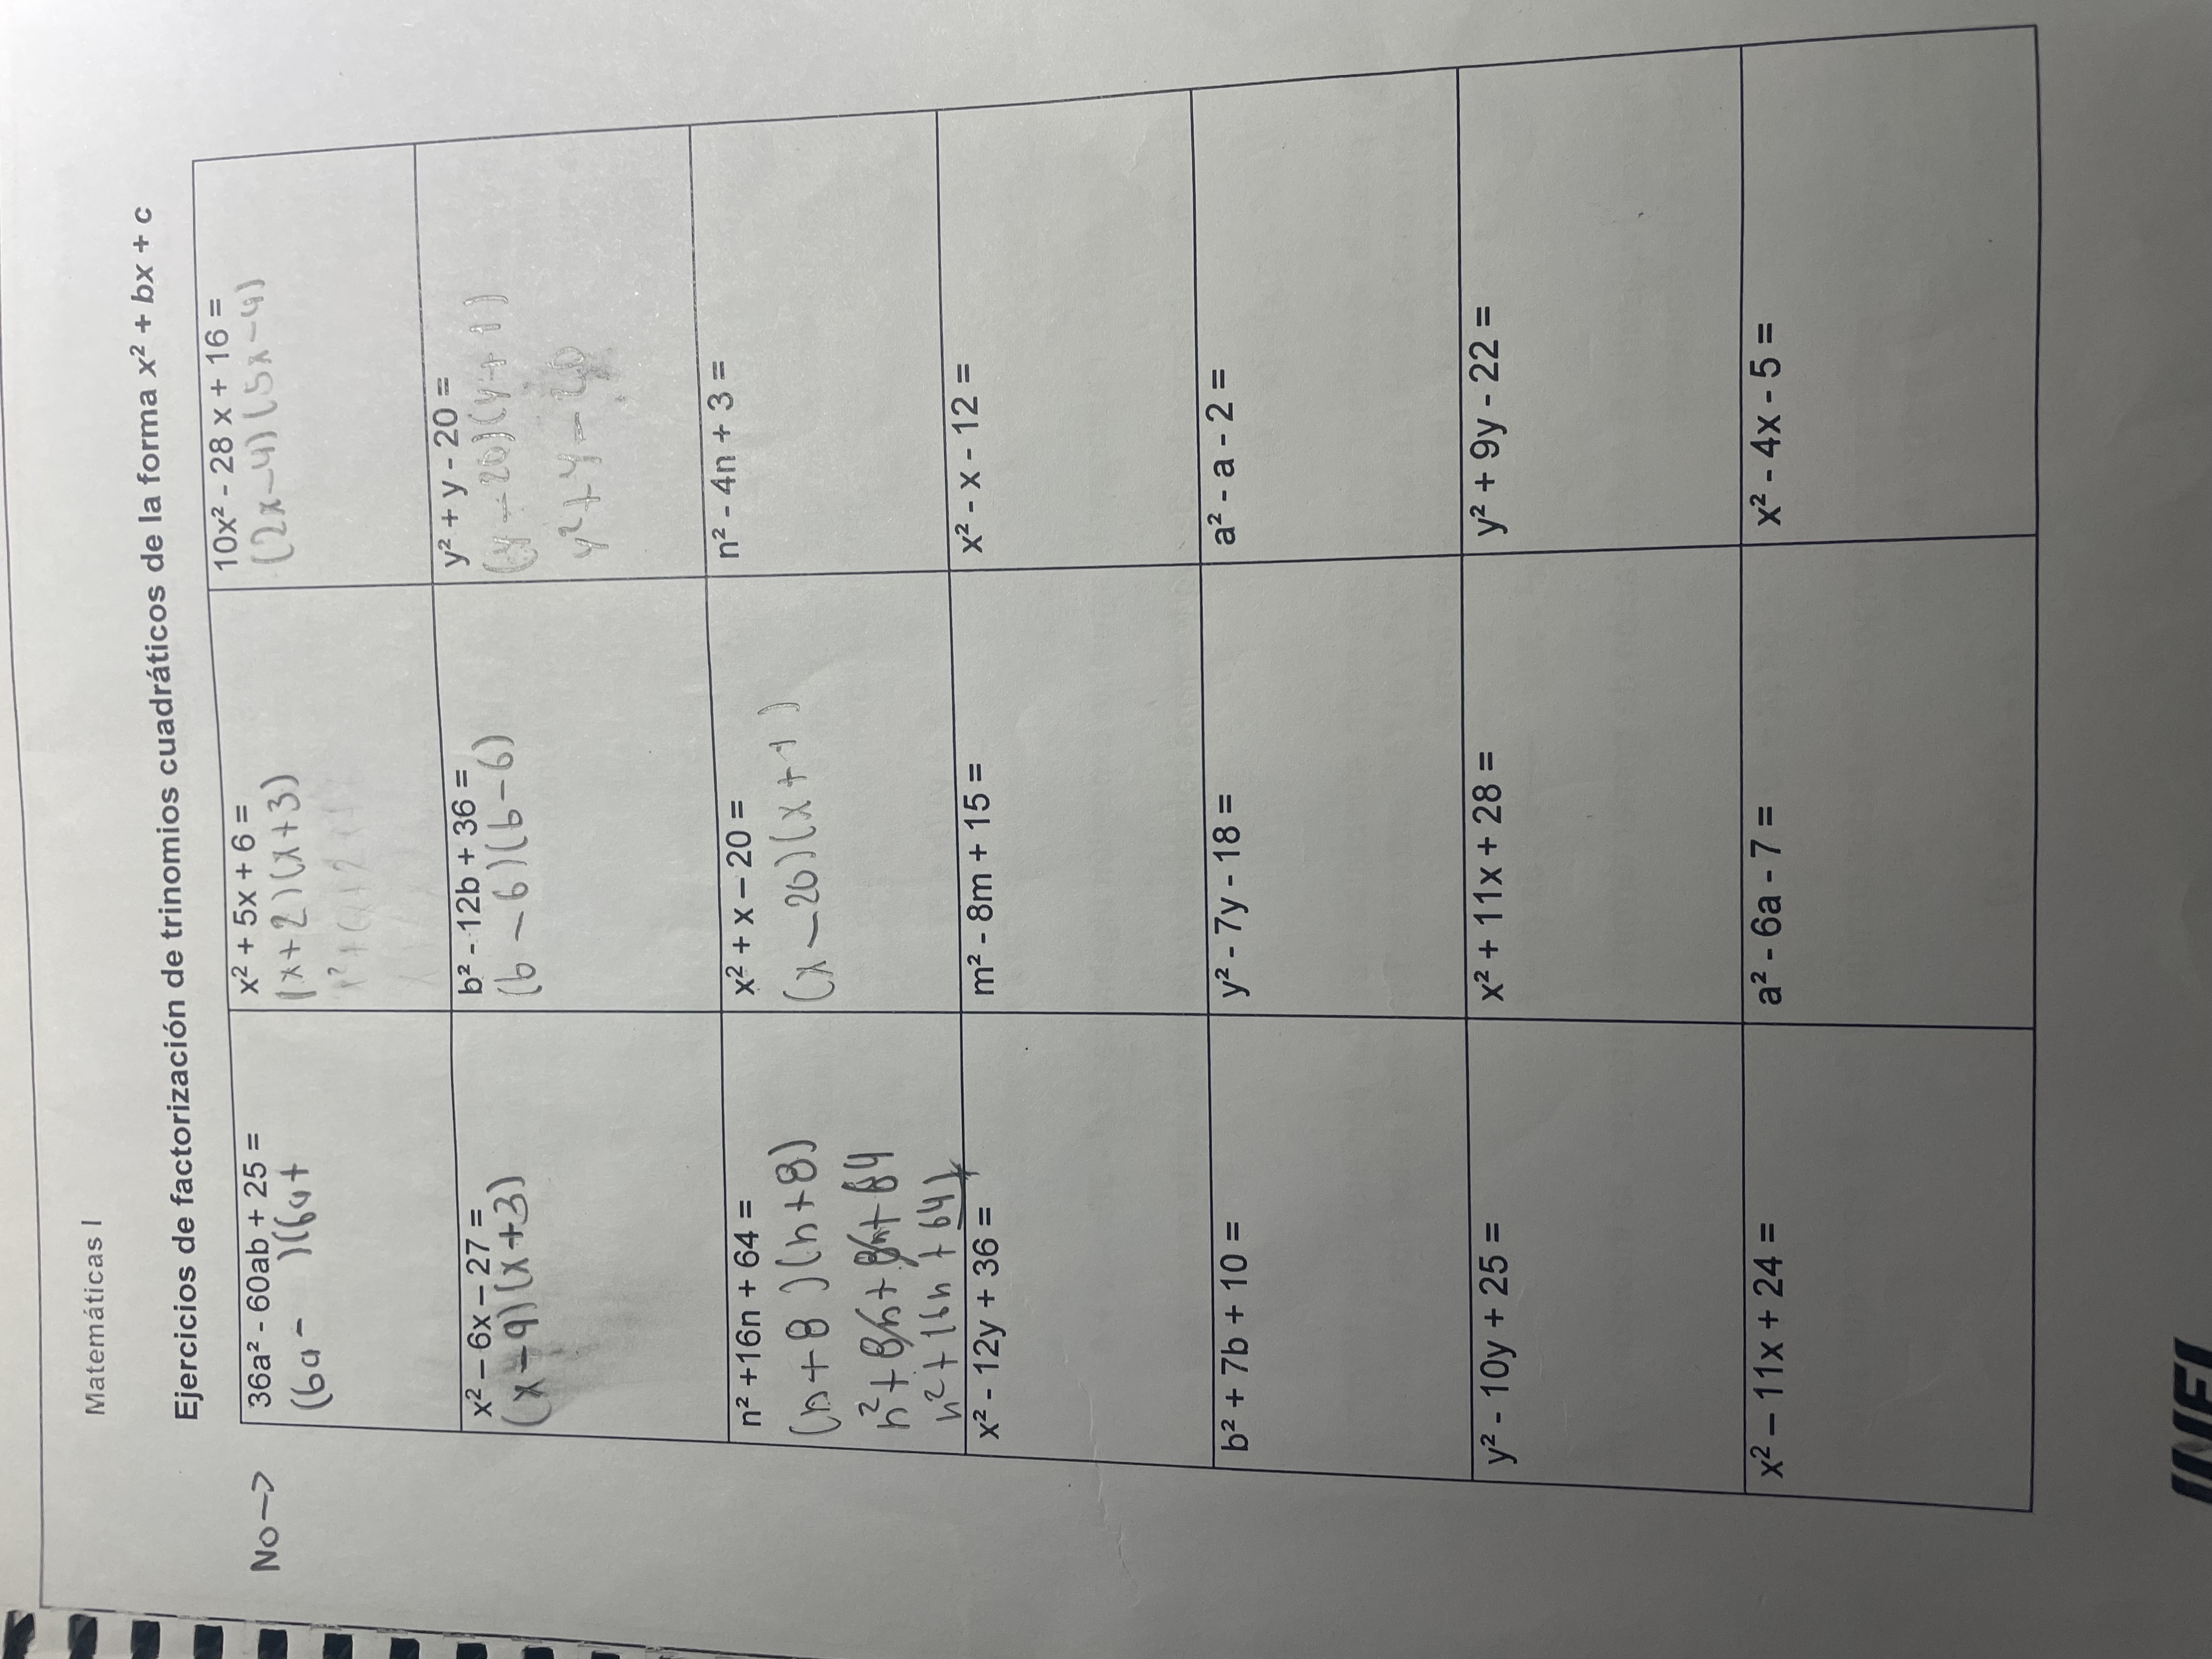 Matemáticas I
Ejercicios de factorización de trinomios cuadráticos de la forma x² + bx + c
No →
36a² - 60ab + 25 =
(6a -      )(6a +
x² + 5x + 6 =
(x + 2)(x + 3)
10x² - 28 x + 16 =
(2x - 4)(5x - 4)
x² – 6x – 27 =
(x - 9)(x + 3)
b² - 12b + 36 =
(b - 6)(b - 6)
y² + y - 20 =
(y - 20)(y + 1)
y² + y - 20
n² +16n + 64 =
(n + 8)(n + 8)
n² + 8n + 8n + 64
n² + 16n + 64
x² + x – 20 =
(x - 20)(x + 1)
n² - 4n + 3 =
x² - 12y + 36 =
m² - 8m + 15 =
x² - x - 12 =
b² + 7b + 10 =
y² - 7y - 18 =
a² - a - 2 =
y² - 10y + 25 =
x² + 11x + 28 =
y² + 9y - 22 =
x² – 11x + 24 =
a² - 6a - 7 =
x² - 4x - 5 =